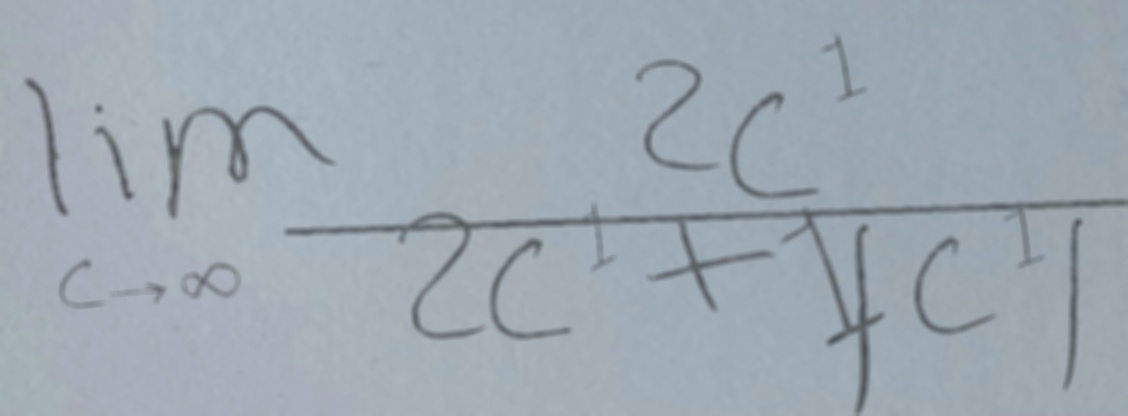 \lim_{c \to \infty} \frac{2c^1}{2c^1 + 1|c^1|}